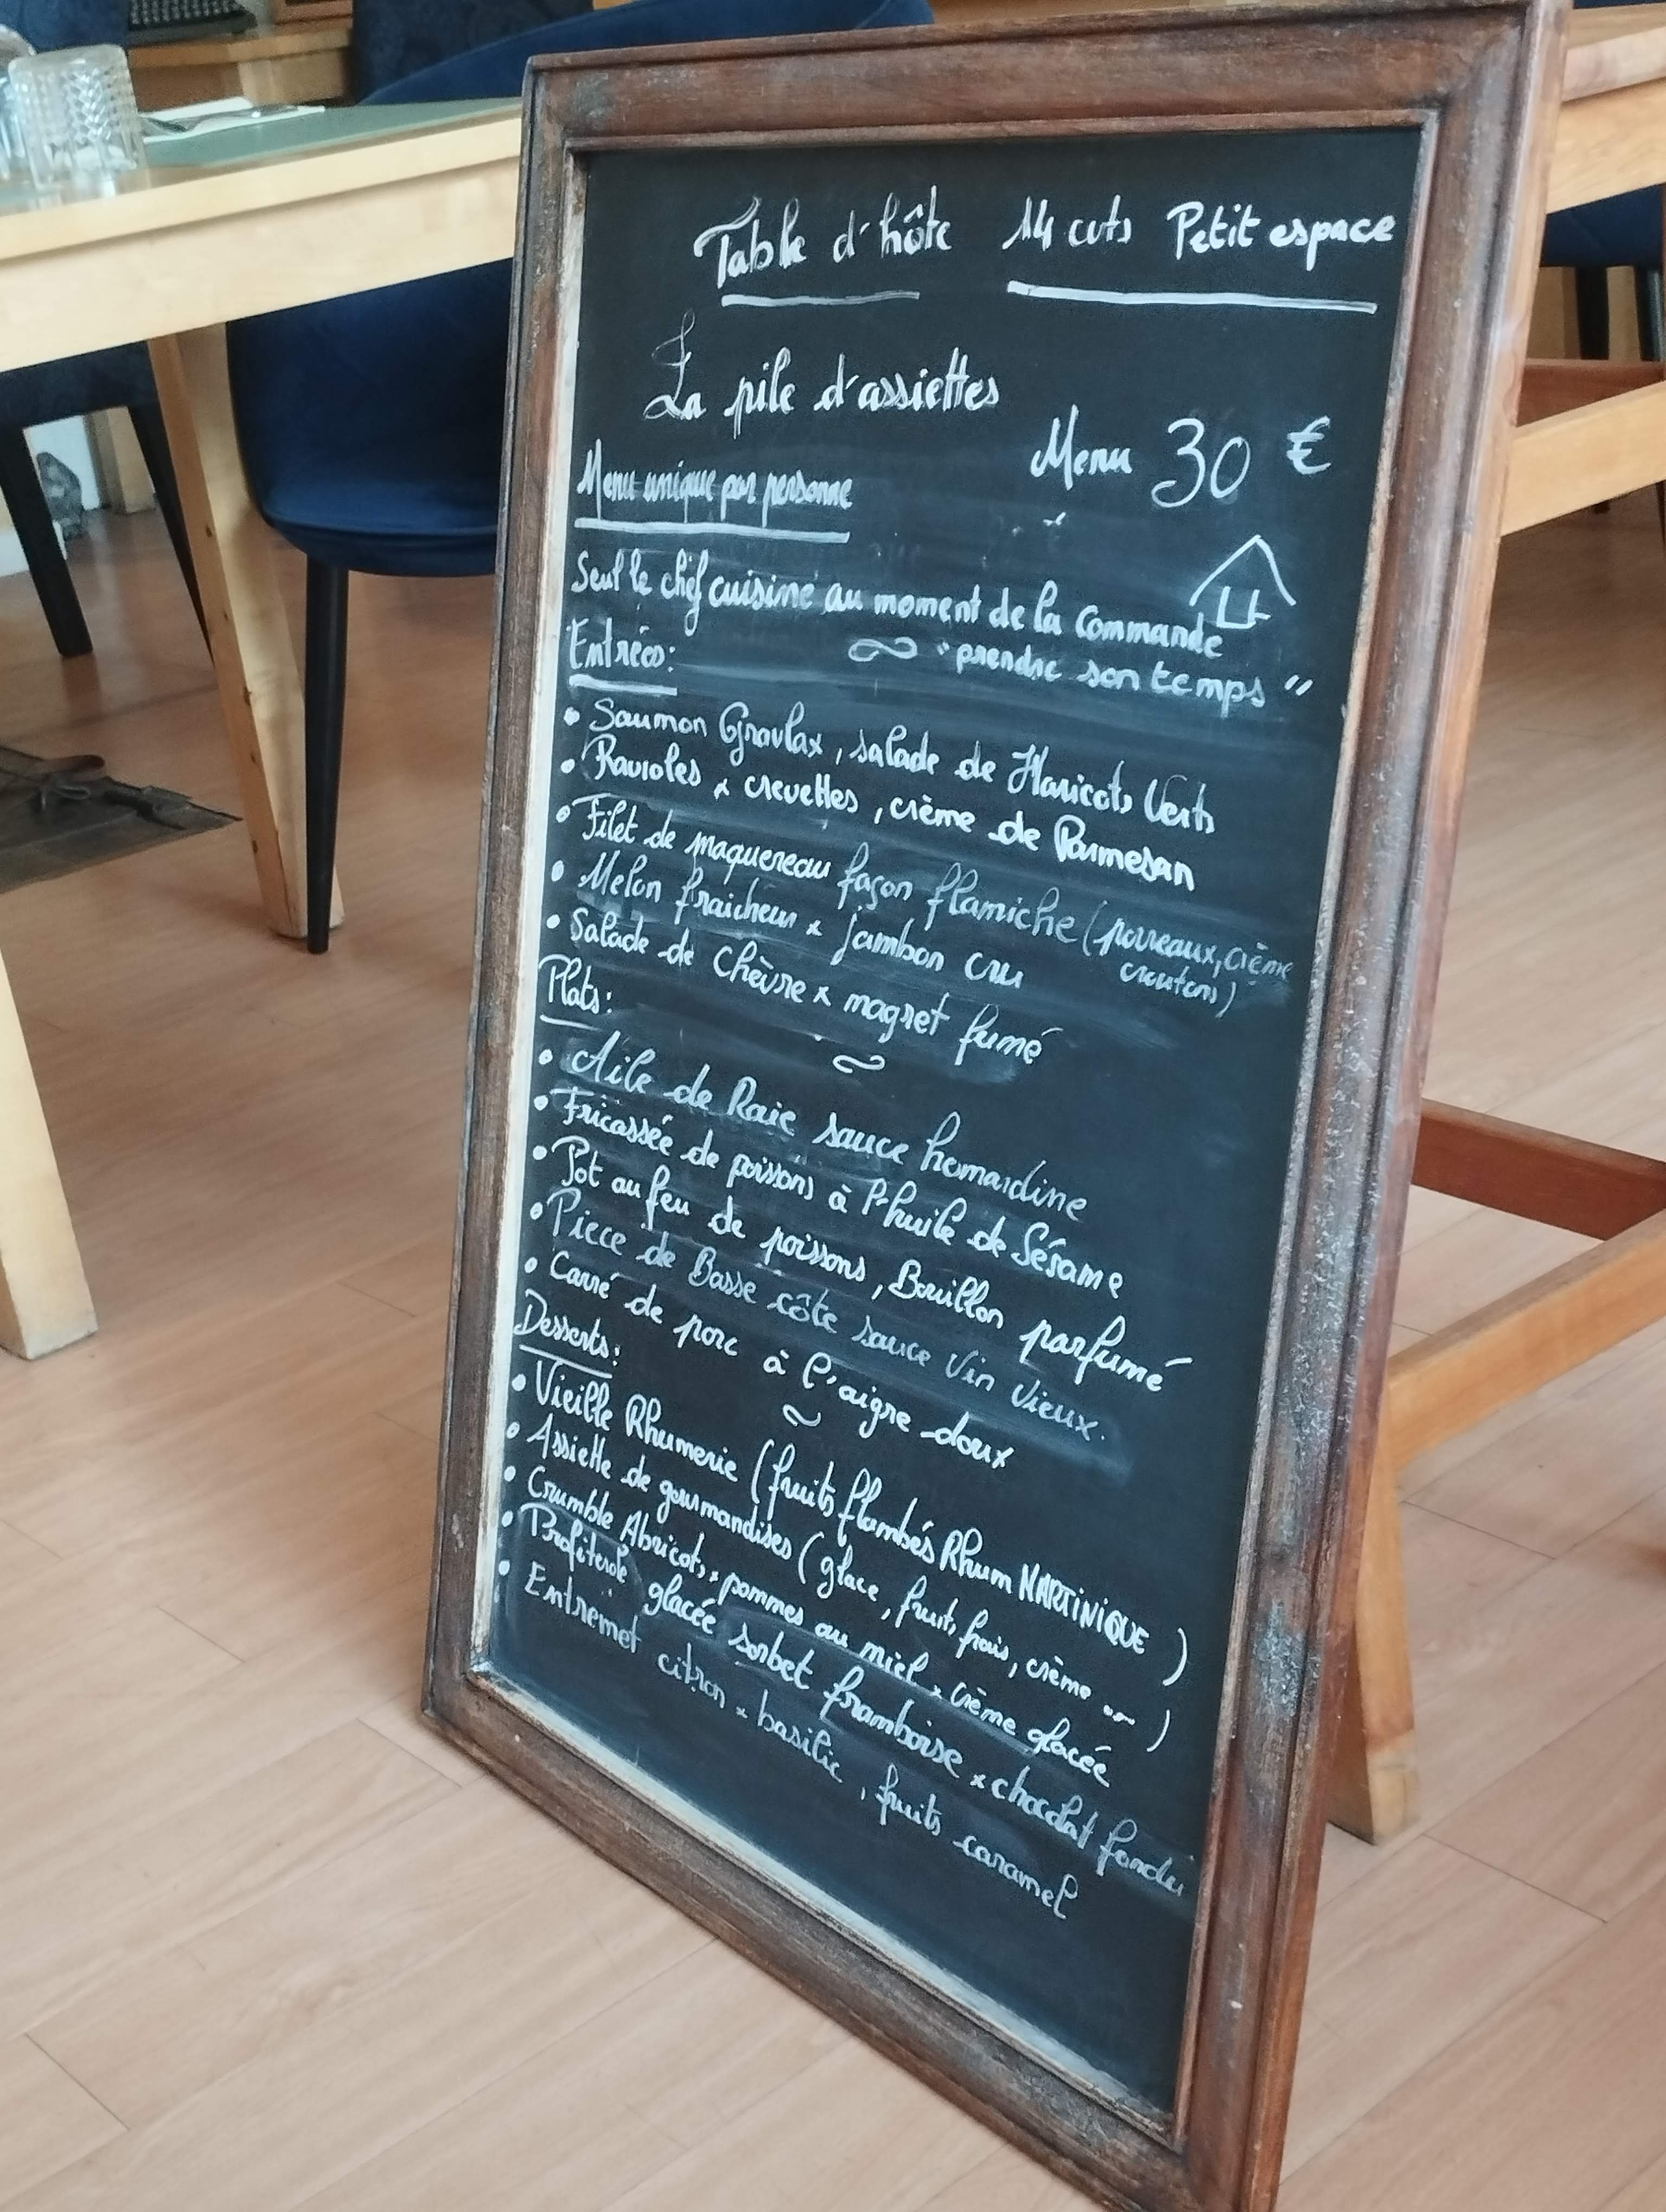 Table d'hôte 14 cvts Petit espace
La pile d'assiettes
Menu 30 €
Menu unique par personne
Seul le chef cuisine au moment de la Commande
"prendre son temps"
Entrées:
• Saumon Gravlax, salade de Haricots Verts
• Ravioles x crevettes, crème de Parmesan
• Filet de maquereau façon flamiche (porreaux, crème
croutons)
• Melon fraicheur x jambon cru
• Salade de Chèvre x magret fumé
Plats:
• Aile de Raie sauce homardine
• Fricassée de poissons à l'huile de Sésame
• Pot au feu de poissons, Bouillon parfumé
• Piece de Basse côte sauce Vin Vieux.
• Carré de porc à l'aigre-doux
Desserts:
• Vieille Rhumerie (fruits flambés Rhum MARTINIQUE)
• Assiette de gourmandises (glace, fruits frais, crème ...)
• Crumble Abricots x pommes au miel x crème glacée
• Profiterole glacée sorbet framboise x chocolat fondu
• Entremet citron x basilic, fruits caramel